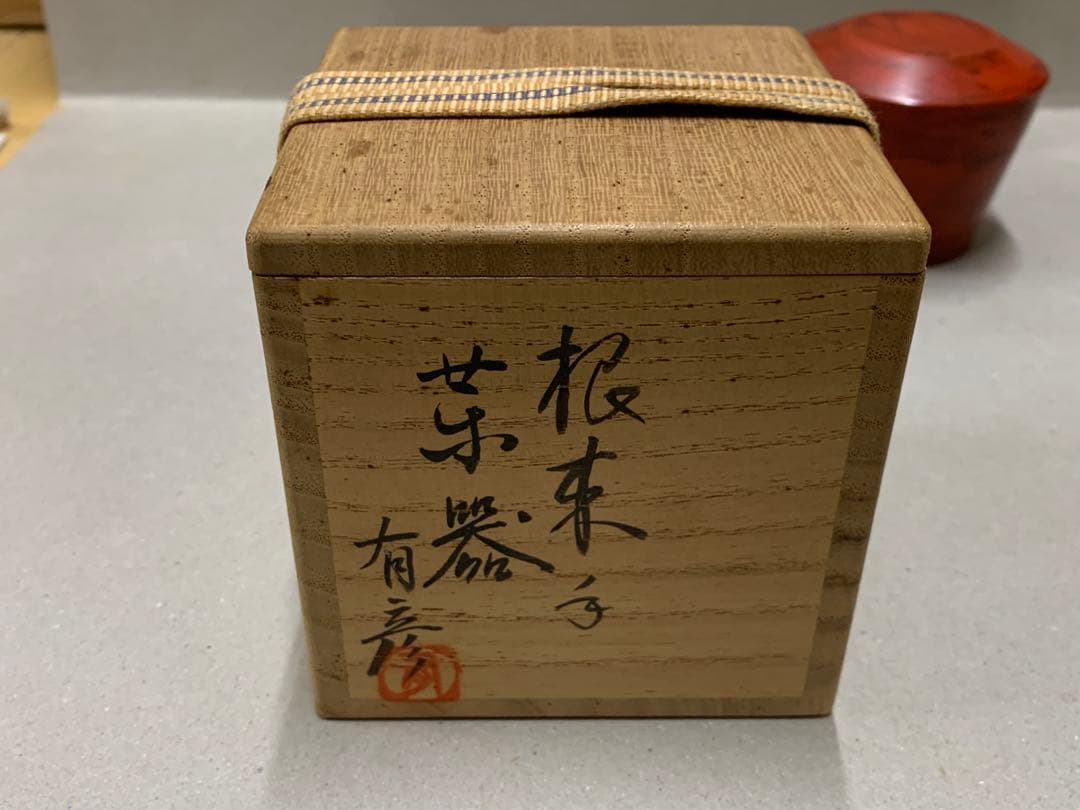 根来手
茶器
有彦